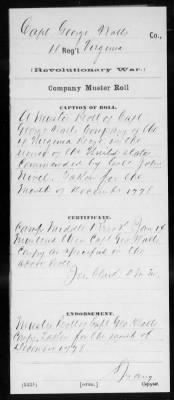 Capt George Wall's Co.,
4 Reg't Virginia
(Revolutionary War.)
Company Muster Roll
CAPTION OF ROLL.
A Muster Roll of Capt
George Walls Company of the
4 Virginia Regt in the
service of the United States
Commanded by Col. John
Nevel. Taken for the
month of December 1778
CERTIFICATE.
Camp Middle Brook Jan 14
Mustered then Capt Geo Walls
Company as specified in the
above Roll
ENDORSEMENT.
Muster Roll of Capt Geo Walls
Comp. Taken for the month of
December 1778
(545)
[OVER.]
Copyist.